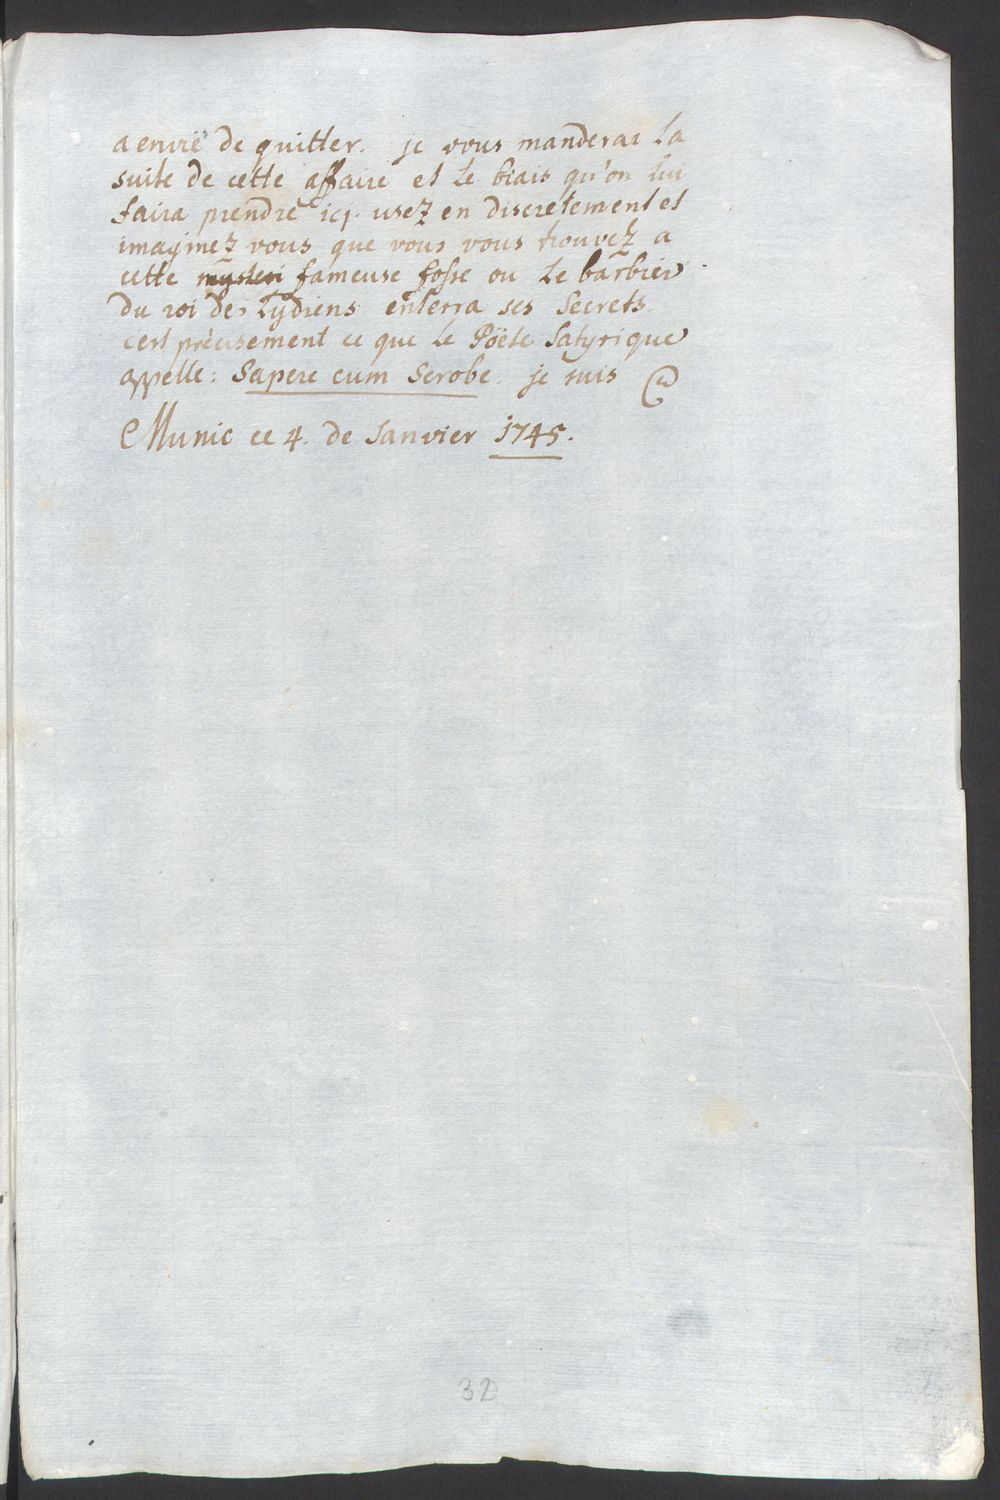 a envië de quitter. je vous manderai la
suite de cette affaire et le biais qu'on lui
faira prendre icj. usez en discretement et
imaginez vous que vous vous trouvez a
cette fameuse fosse ou le barbier
du roi des Lydiens enterra ses Secrets
c'est précisement ce que le Pöete Satyrique
appelle: Sapere cum Scrobe. je suis
Munic ce 4. de Janvier 1745.
32